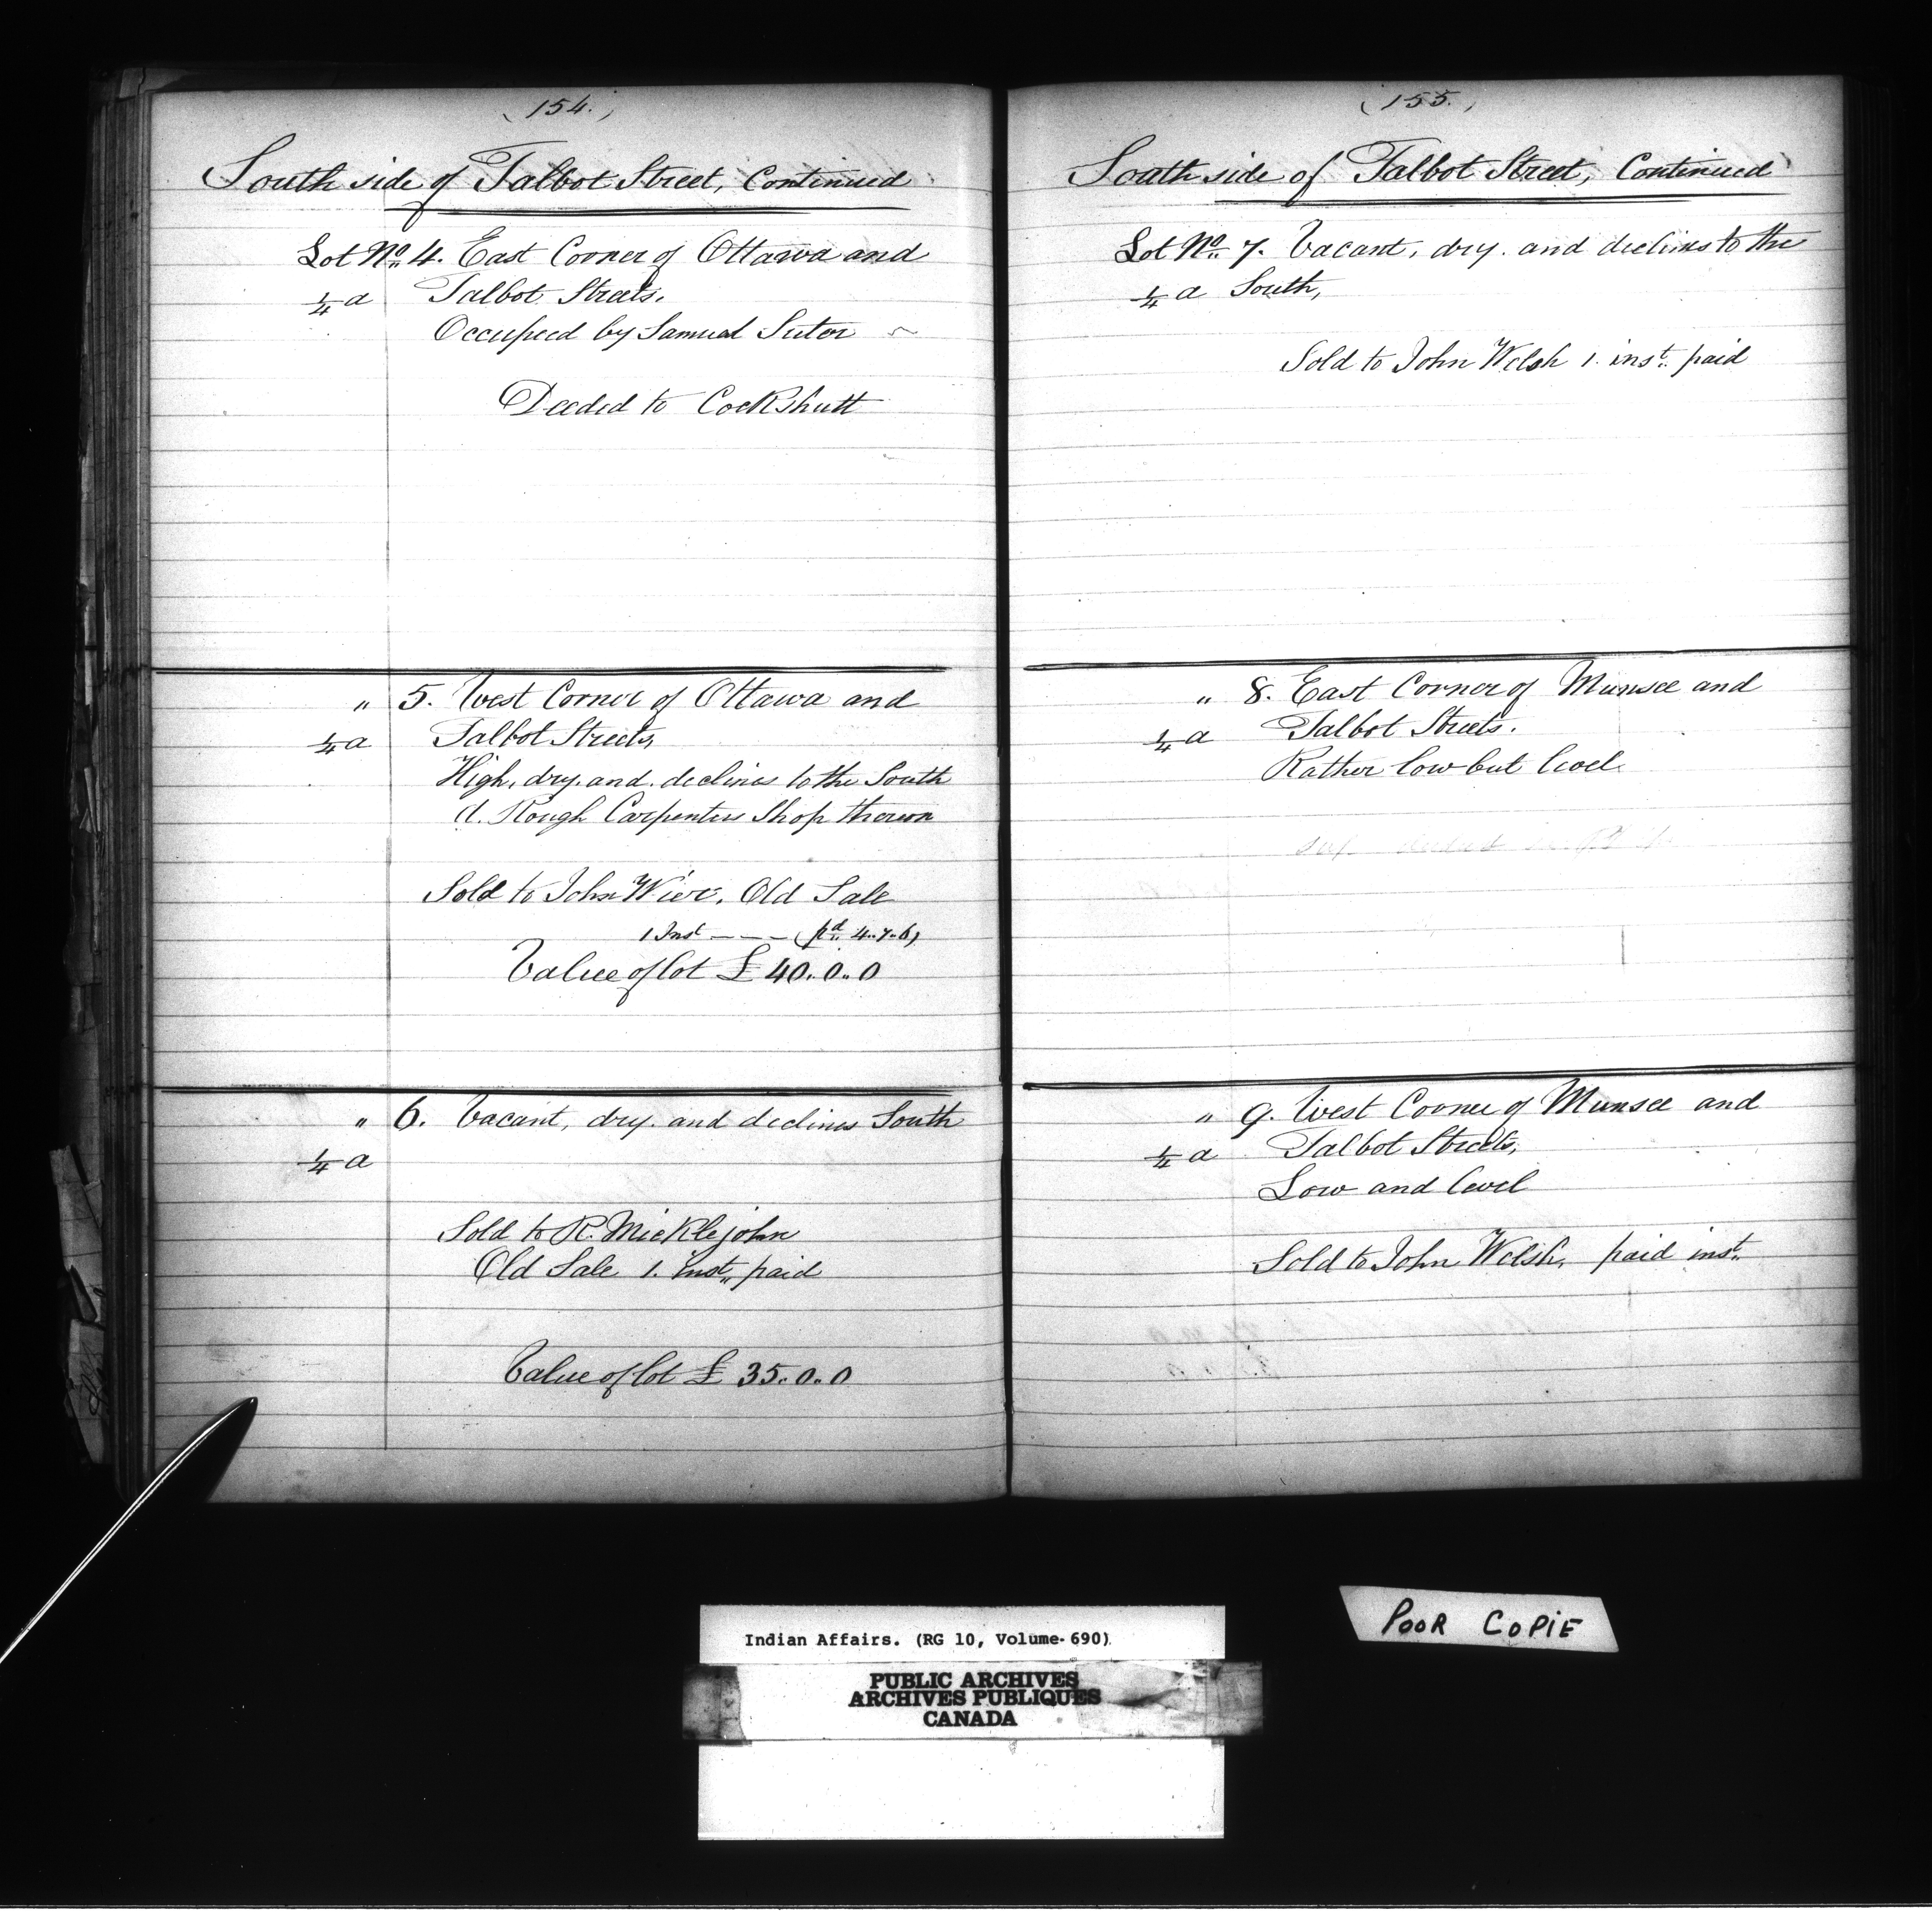 (154.)
South side of Talbot Street, Continued
Lot No. 4. East Corner of Ottawa and
1/4 a Talbot Streets.
Occupied by Samuel Suter
Deeded to Cockshutt
" 5. West Corner of Ottawa and
1/4 a Talbot Streets,
High, dry. and declines to the South
A. Rough Carpenters Shop thereon
Sold to John Wier. Old Sale
1 Inst — — — (pd 4..7..6)
Value of lot £ 40..0..0
" 6. Vacant, dry. and declines South
1/4 a
Sold to R. Micklejohn
Old Sale 1. inst. paid
Value of lot £ 35..0..0
(155.)
South side of Talbot Street, Continued
Lot No. 7. Vacant, dry. and declines to the
1/4 a South,
Sold to John Welsh 1. inst. paid
" 8. East Corner of Munsee and
1/4 a Talbot Streets.
Rather low but level.
" 9. West Corner of Munsee and
1/4 a Talbot Streets,
Low and level
Sold to John Welsh, paid inst.
Indian Affairs. (RG 10, Volume 690)
PUBLIC ARCHIVES
ARCHIVES PUBLIQUES
CANADA
POOR COPIE